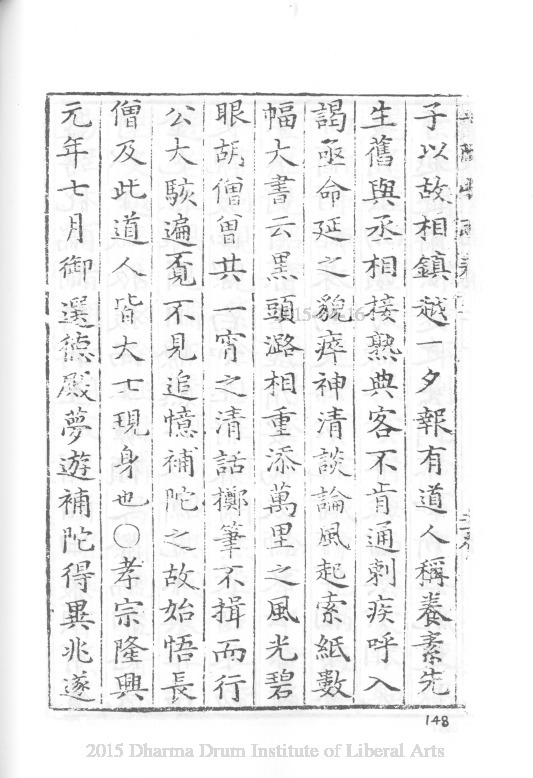 子以故相鎮越一夕報有道人稱養素先
生舊與丞相接熟典客不肯通剌疾呼入
謁亟命延之貌瘁神清談論風起索紙數
幅大書云黒頭潞相重添萬里之風光碧
眼胡僧曾共一宵之清話擲筆不揖而行
公大駭遍覔不見追憶補陀之故始悟長
僧及此道人皆大士現身也○孝宗隆興
元年七月御選德殿夢遊補陀得異兆遂
148
2015 Dharma Drum Institute of Liberal Arts